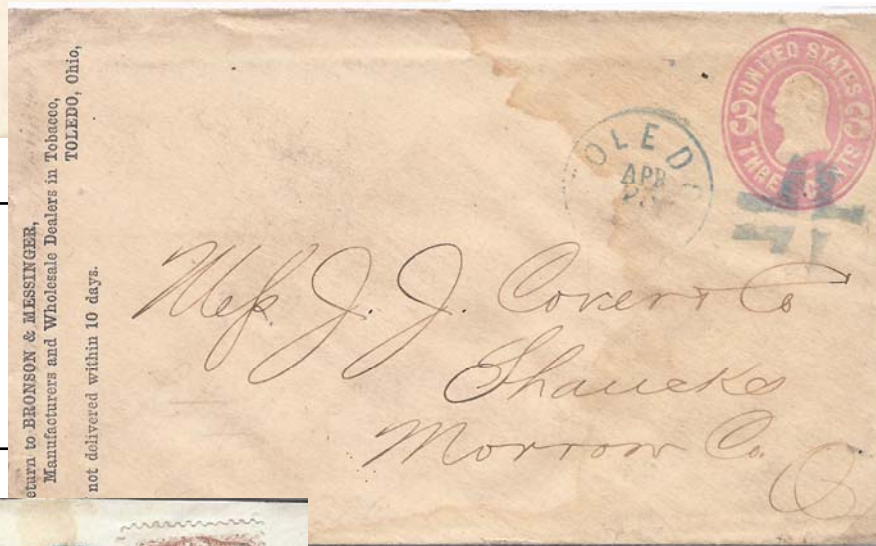 eturn to BRONSON & MESSINGER,
Manufacturers and Wholesale Dealers in Tobacco,
TOLEDO, Ohio,
not delivered within 10 days.
OLEDO
APR
UNITED STATES
THREE CENTS
3 3
Mess J. J. Cover & Co
Shaucks
Morrow Co.
O